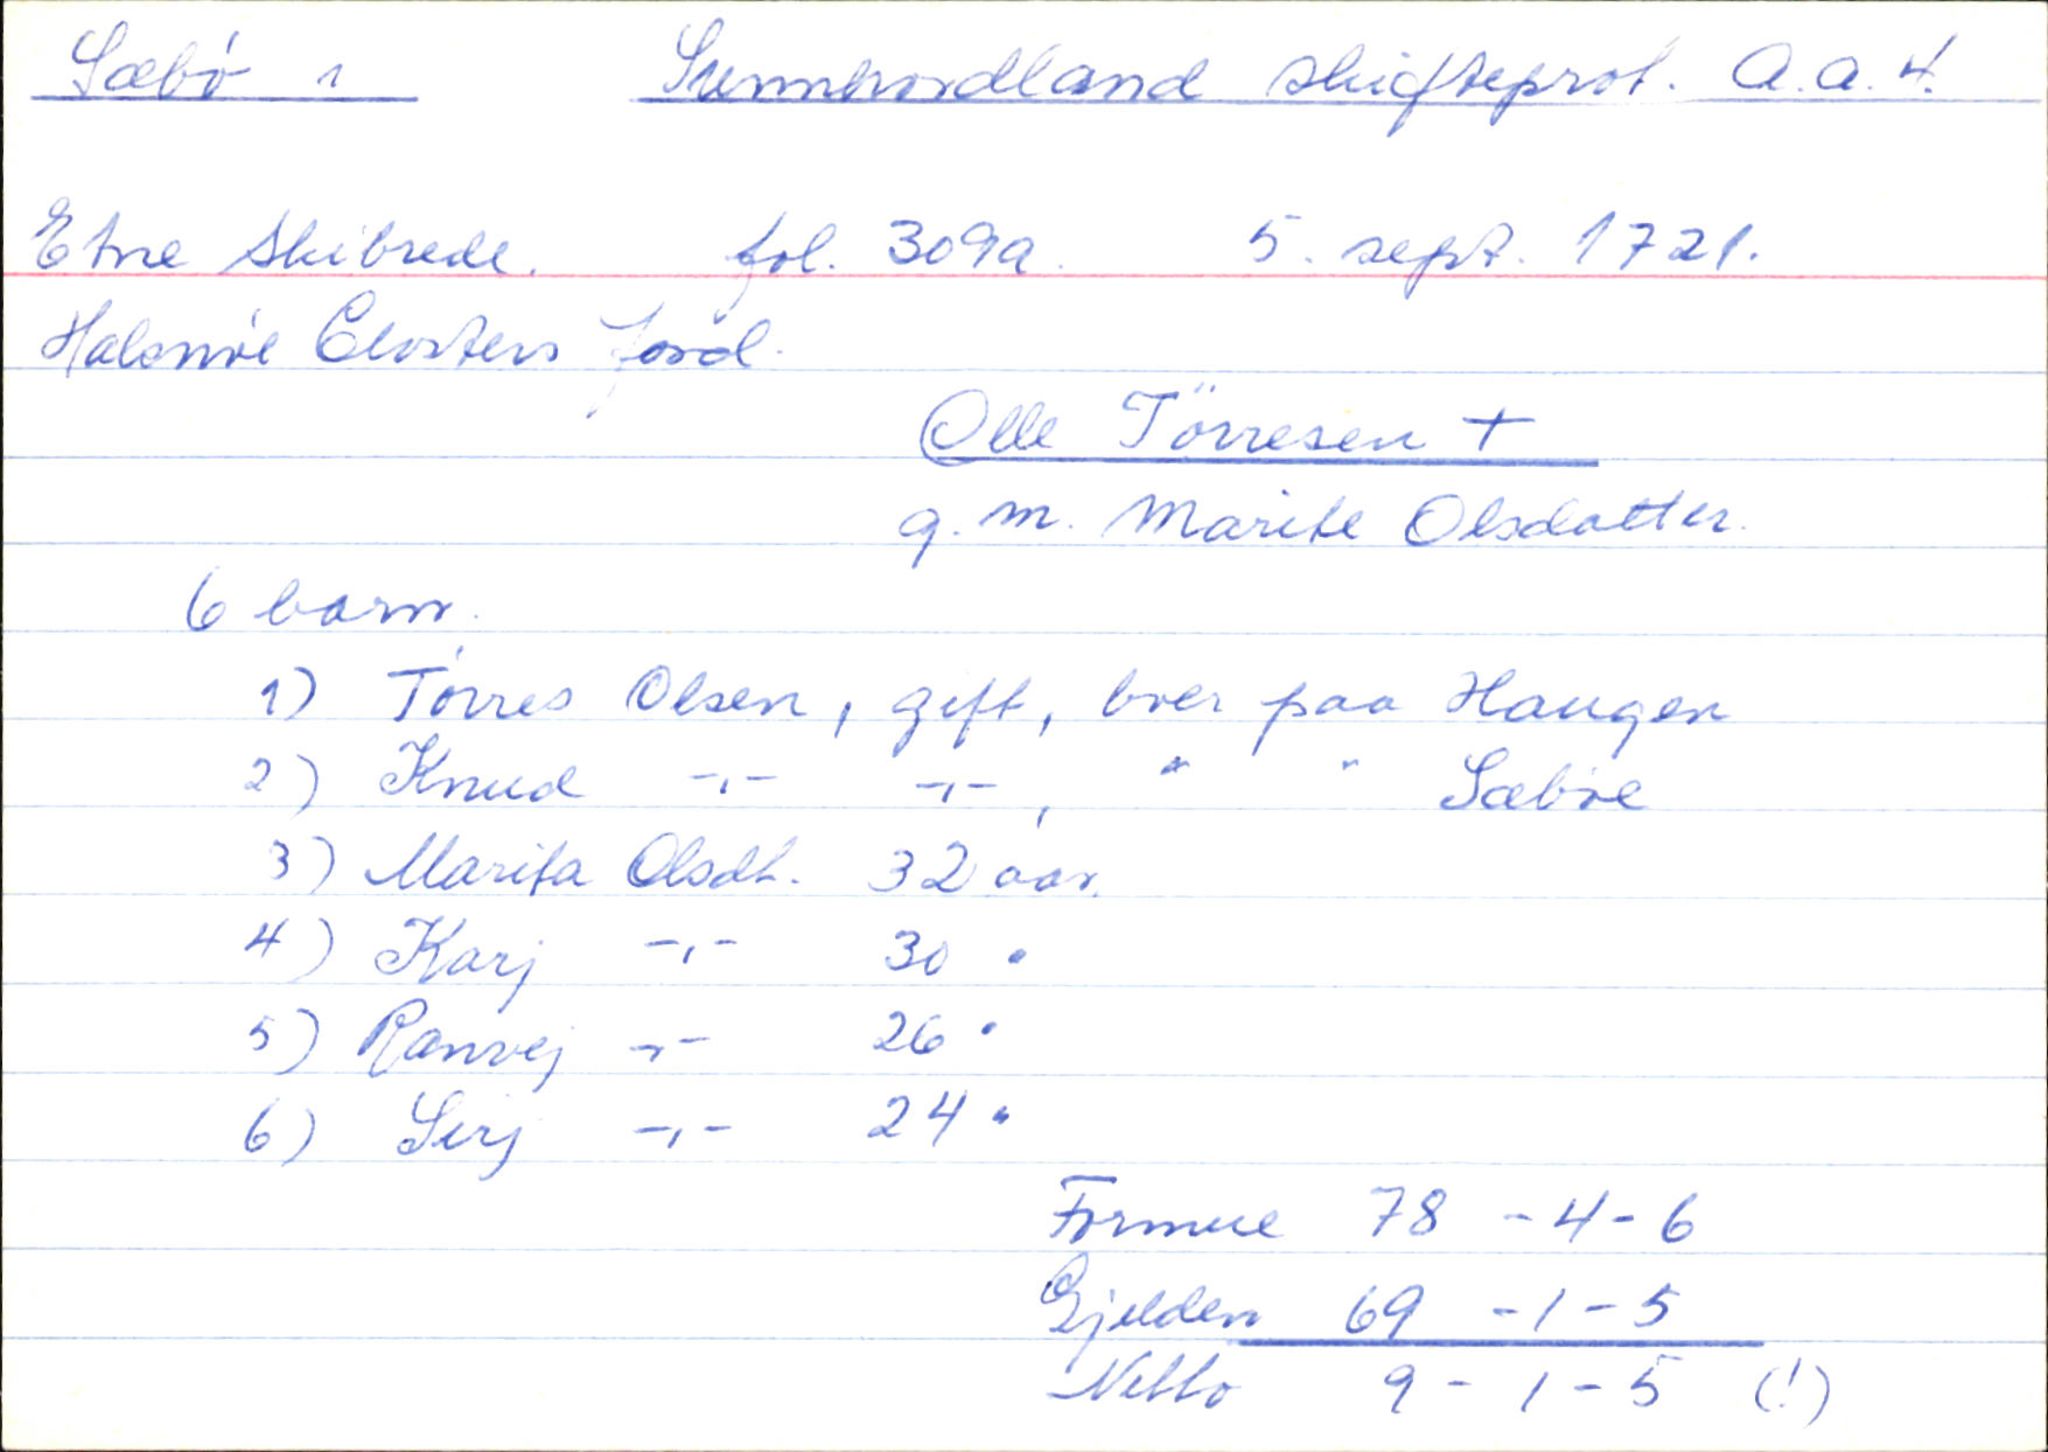 Sæbø 1 Sunnhordland skifteprot. A.a.4.
Etne Skibrede. fol. 309a. 5. sept. 1721.
Halsnöe Closters jord.
Olle Törresen +
g. m. Marite Olsdatter.
6 barn.
1) Törres Olsen, gift, boer paa Haugen
2) Knud -,- -,-, " " Sæböe
3) Marita Olsdt. 32 aar.
4) Karj -,- 30 "
5) Ranvej -,- 26 "
6) Sirj -,- 24 "
Formue 78 - 4 - 6
Gjelden 69 - 1 - 5
Netto 9 - 1 - 5 (!)